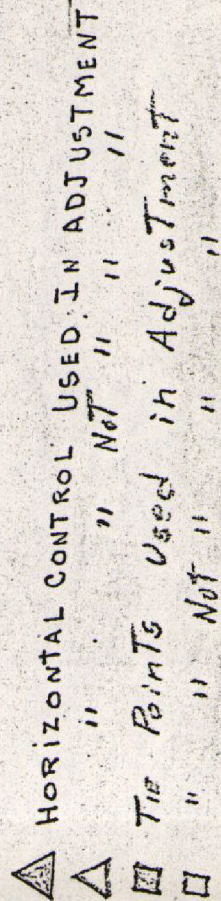 HORIZONTAL CONTROL USED IN ADJUSTMENT
" " NOT " " "
Tie Points Used in Adjustment
" " Not " " "